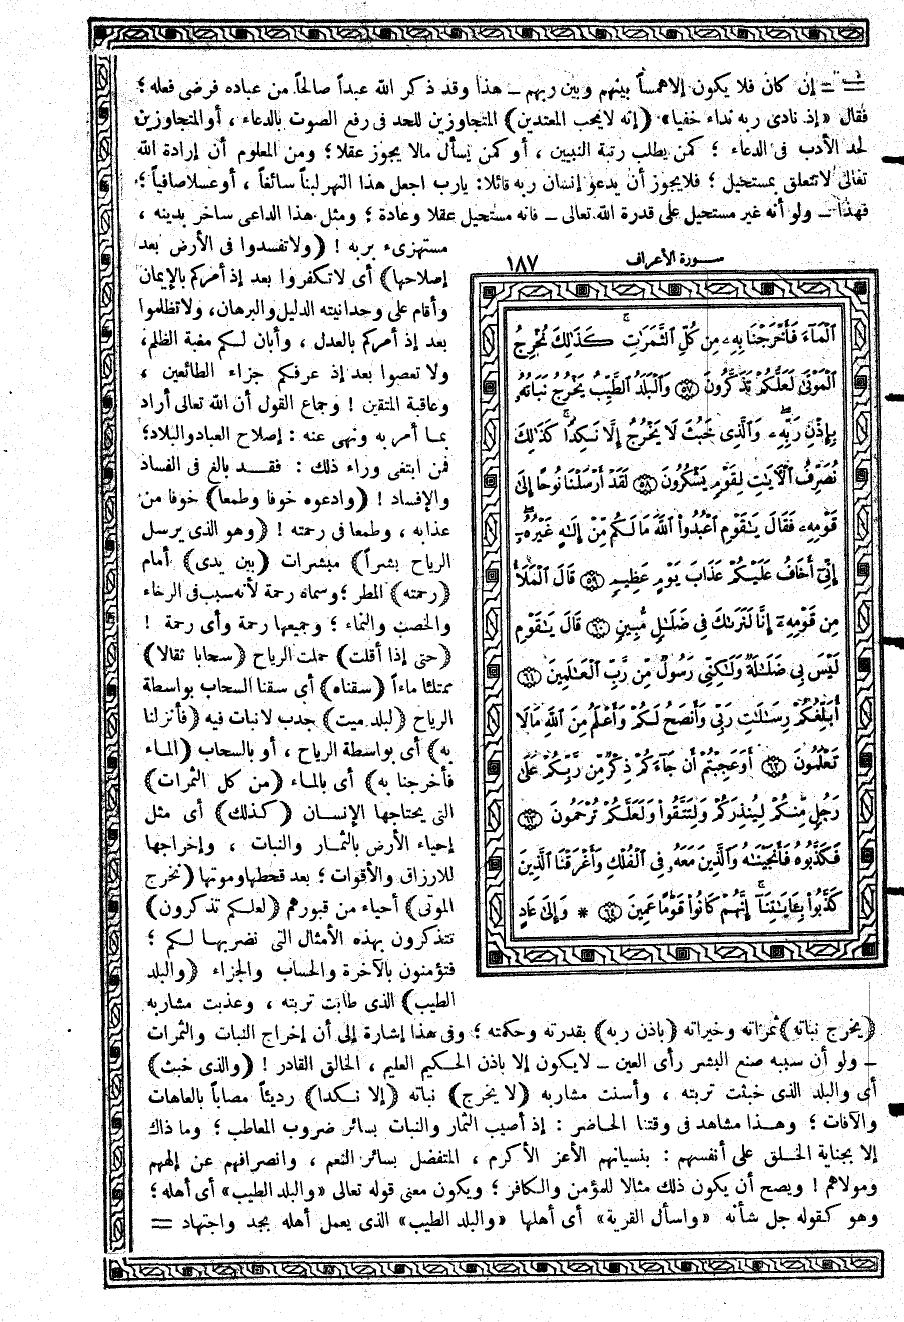 = إن كان فلا يكون إلا همساً بينهم وبين ربهم ــ هذا وقد ذكر الله عبداً صالحاً من عباده فرضى فعله ؛
فقال «إذ نادى ربه نداء خفيا» (إنه لايحب المعتدين) المتجاوزين للحد فى رفع الصوت بالدعاء ، أو المتجاوزين
لحد الأدب فى الدعاء ؛ كمن يطلب رتبة النبيين ، أو كمن يسأل مالا يجوز عقلا ؛ ومن المعلوم أن إرادة الله
تعالى لاتتعلق بمستحيل ؛ فلايجوز أن يدعو إنسان ربه قائلا: يارب اجعل هذا النهر لبناً سائغاً ، أو عسلا صافياً ؛
فهذا ــ ولو أنه غير مستحيل على قدرة الله تعالى ــ فانه مستحيل عقلا وعادة ؛ ومثل هذا الداعى ساخر بدينه ،
مستهزىء بربه ! (ولاتفسدوا فى الأرض بعد
إصلاحها) أى لاتكفروا بعد إذ أمركم بالإيمان
وأقام على وحدانيته الدليل والبرهان، ولاتظلموا
بعد إذ أمركم بالعدل ، وأبان لكم مغبة الظلم،
ولا تعصوا بعد إذ عرفكم جزاء الطائعين ،
وعاقبة المتقين ! وجماع القول أن الله تعالى أراد
بما أمر به ونهى عنه : إصلاح العباد والبلاد؛
فمن ابتغى وراء ذلك : فقد بالغ فى الفساد
والإفساد ! (وادعوه خوفا وطمعا) خوفا من
عذابه ، وطمعا فى رحمته ! (وهو الذى يرسل
الرياح بشراً) مبشرات (بين يدى) أمام
(رحمته) المطر ؛ وسماه رحمة لأنه سبب فى الرخاء
والخصب والنماء ؛ وجميعها رحمة وأى رحمة !
(حتى إذا أقلت) حملت الرياح (سحابا ثقالا)
ممتلئا ماءاً (سقناه) أى سقنا السحاب بواسطة
الرياح (لبلد ميت) جدب لانبات فيه (فأنزلنا
به) أى بواسطة الرياح ، أو بالسحاب (الماء
فأخرجنا به) أى بالماء (من كل الثمرات)
التى يحتاجها الإنسان (كذلك) أى مثل
إحياء الأرض بالثمار والنبات ، وإخراجها
للارزاق والأقوات ؛ بعد قحطها وموتها (نخرج
الموتى) أحياء من قبورهم (لعلكم تذكرون)
تتذكرون بهذه الأمثال التى نضربها لكم ؛
فتؤمنون بالآخرة والحساب والجزاء (والبلد
الطيب) الذى طابت تربته ، وعذبت مشاربه
سورة الأعراف ١٨٧
ٱلْمَآءَ فَأَخْرَجْنَا بِهِۦ مِن كُلِّ ٱلثَّمَرَٰتِ ۚ كَذَٰلِكَ نُخْرِجُ
ٱلْمَوْتَىٰ لَعَلَّكُمْ تَذَكَّرُونَ ٥٧ وَٱلْبَلَدُ ٱلطَّيِّبُ يَخْرُجُ نَبَاتُهُۥ
بِإِذْنِ رَبِّهِۦ ۖ وَٱلَّذِى خَبُثَ لَا يَخْرُجُ إِلَّا نَكِدًا ۚ كَذَٰلِكَ
نُصَرِّفُ ٱلْءَايَٰتِ لِقَوْمٍ يَشْكُرُونَ ٥٨ لَقَدْ أَرْسَلْنَا نُوحًا إِلَىٰ
قَوْمِهِۦ فَقَالَ يَٰقَوْمِ ٱعْبُدُوا۟ ٱللَّهَ مَا لَكُم مِّنْ إِلَٰهٍ غَيْرُهُۥٓ
إِنِّىٓ أَخَافُ عَلَيْكُمْ عَذَابَ يَوْمٍ عَظِيمٍ ٥٩ قَالَ ٱلْمَلَأُ
مِن قَوْمِهِۦٓ إِنَّا لَنَرَىٰكَ فِى ضَلَٰلٍ مُّبِينٍ ٦٠ قَالَ يَٰقَوْمِ
لَيْسَ بِى ضَلَٰلَةٌ وَلَٰكِنِّى رَسُولٌ مِّن رَّبِّ ٱلْعَٰلَمِينَ ٦١
أُبَلِّغُكُمْ رِسَٰلَٰتِ رَبِّى وَأَنصَحُ لَكُمْ وَأَعْلَمُ مِنَ ٱللَّهِ مَا لَا
تَعْلَمُونَ ٦٢ أَوَعَجِبْتُمْ أَن جَآءَكُمْ ذِكْرٌ مِّن رَّبِّكُمْ عَلَىٰ
رَجُلٍ مِّنكُمْ لِيُنذِرَكُمْ وَلِتَتَّقُوا۟ وَلَعَلَّكُمْ تُرْحَمُونَ ٦٣
فَكَذَّبُوهُ فَأَنجَيْنَٰهُ وَٱلَّذِينَ مَعَهُۥ فِى ٱلْفُلْكِ وَأَغْرَقْنَا ٱلَّذِينَ
كَذَّبُوا۟ بِـَٔايَٰتِنَآ ۚ إِنَّهُمْ كَانُوا۟ قَوْمًا عَمِينَ ٦٤ * وَإِلَىٰ عَادٍ
(يخرج نباته) ثمراته وخيراته (باذن ربه) بقدرته وحكمته ؛ وفى هذا إشارة إلى أن إخراج النبات والثمرات
ــ ولو أن سببه صنع البشر رأى العين ــ لايكون إلا باذن الحكيم العليم ، الخالق القادر ! (والذى خبث)
أى والبلد الذى خبثت تربته ، وأسنت مشاربه (لا يخرج) نباته (إلا نكدا) رديئاً مصاباً بالعاهات
والآفات ؛ وهذا مشاهد فى وقتنا الحاضر : إذ أصيب الثمار والنبات بسائر ضروب المعاطب ؛ وما ذاك
إلا بجناية الخلق على أنفسهم : بنسيانهم الأعز الأكرم ، المتفضل بسائر النعم ، وانصرافهم عن إلههم
ومولاهم ! ويصح أن يكون ذلك مثالا للمؤمن والكافر ؛ ويكون معنى قوله تعالى «والبلد الطيب» أى أهله ؛
وهو كقوله جل شأنه «واسأل القرية» أى أهلها «والبلد الطيب» الذى يعمل أهله بجد واجتهاد =